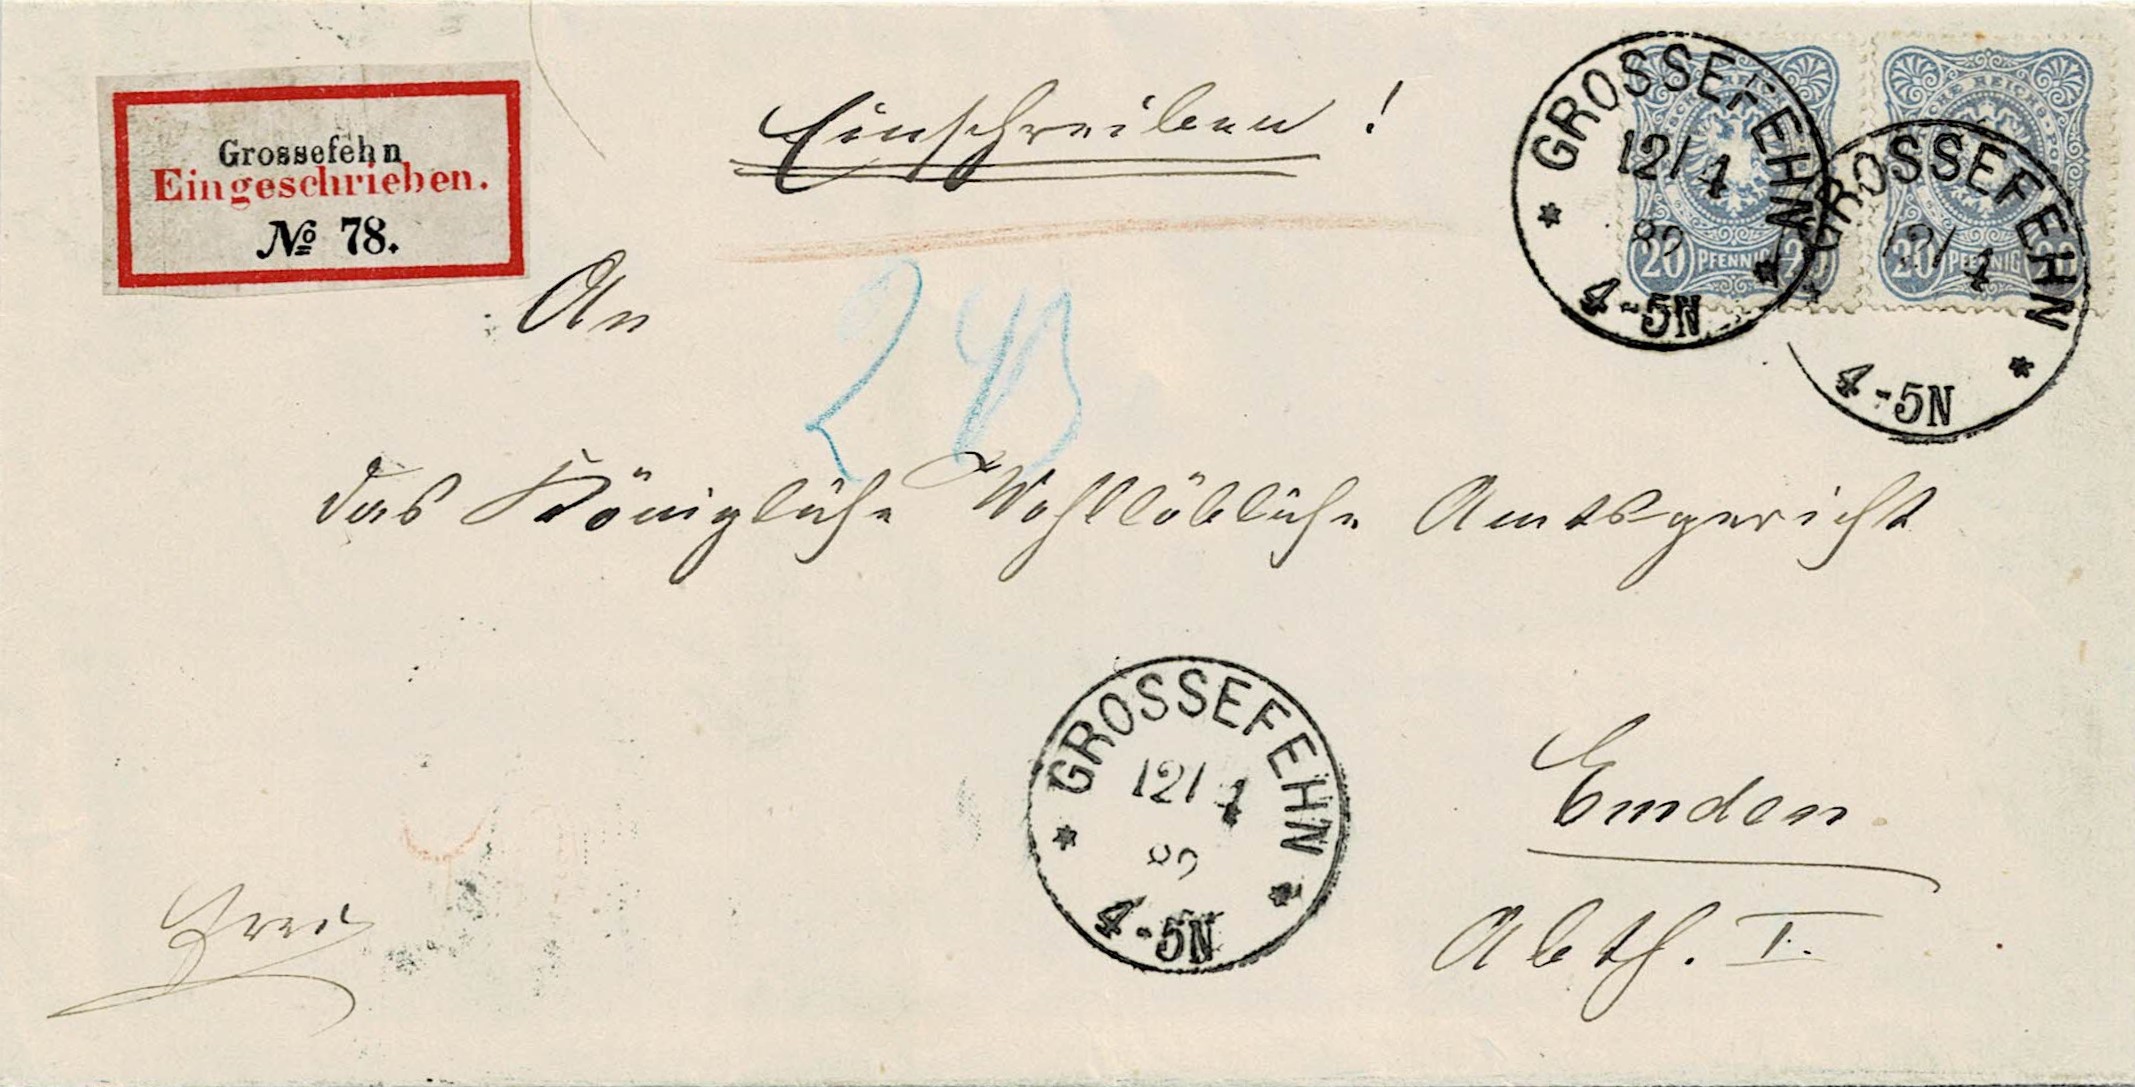 Grossefehn
Eingeschrieben.
№ 78.
Einschreiben!
GROSSEFEHN
12/4
89
4-5N
20 PFENNIG 20
GROSSEFEHN
12/4
4-5N
20 PFENNIG 20
An
das Königliche Wohllöbliche Amtsgericht
GROSSEFEHN
12/4
4-5N
Emden.
Abth. I.
Frei